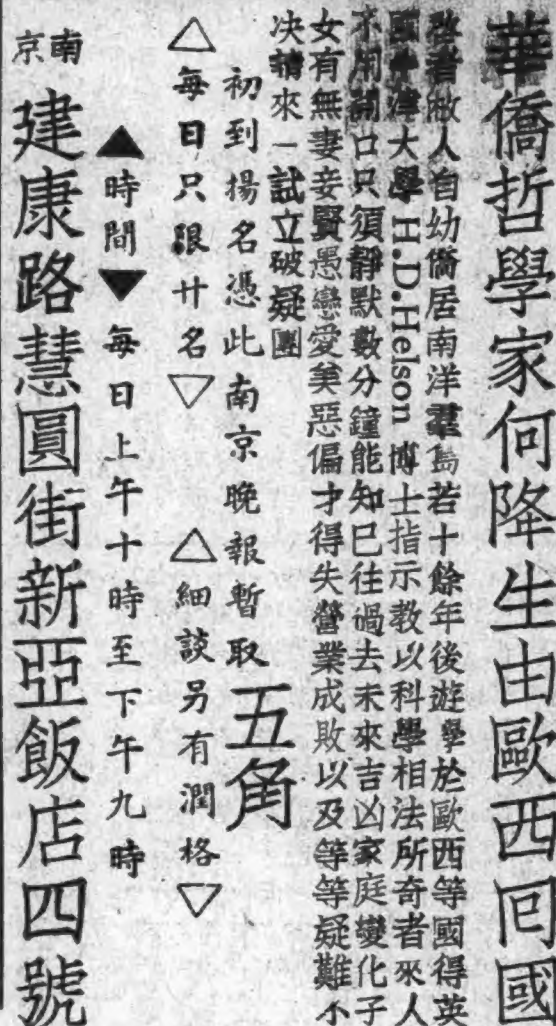 華僑哲學家何降生由歐西囘國
啓者敝人自幼僑居南洋羣島若十餘年後遊學於歐西等國得英
國牛津大學 H.D.Helson 博士指示教以科學相法所奇者來人
不用開口只須靜默數分鐘能知已往過去未來吉凶家庭變化子
女有無妻妾賢愚戀愛美惡偏才得失營業成敗以及等等疑難不
决請來一試立破疑團
初到揚名憑此南京晚報暫取五角
△每日只限廿名▽ △細談另有潤格▽
▲時間▼每日上午十時至下午九時
南京
建康路慧圓街新亞飯店四號